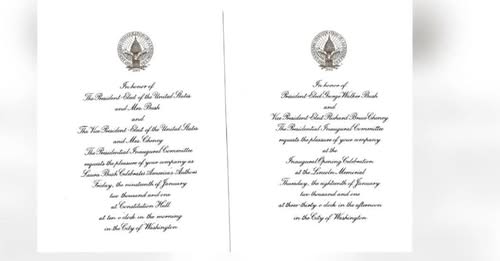 In honor of
The President-Elect of the United States
and Mrs. Bush
and
The Vice President-Elect of the United States
and Mrs. Cheney
The Presidential Inaugural Committee
requests the pleasure of your company as
Laura Bush Celebrates America's Authors
Friday, the nineteenth of January
two thousand and one
at Constitution Hall
at ten o'clock in the morning
in the City of Washington
In honor of
President-Elect George Walker Bush
and
Vice President-Elect Richard Bruce Cheney
The Presidential Inaugural Committee
requests the pleasure of your company
at the
Inaugural Opening Celebration
at the Lincoln Memorial
Thursday, the eighteenth of January
two thousand and one
at three-thirty o'clock in the afternoon
in the City of Washington